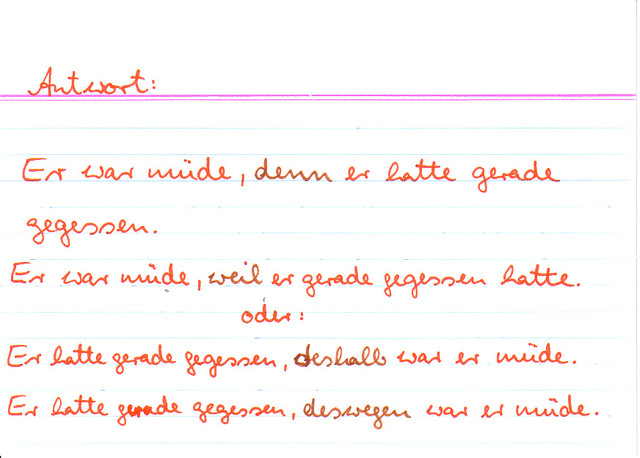 Antwort:
Er war müde, denn er hatte gerade
gegessen.
Er war müde, weil er gerade gegessen hatte.
oder:
Er hatte gerade gegessen, deshalb war er müde.
Er hatte gerade gegessen, deswegen war er müde.